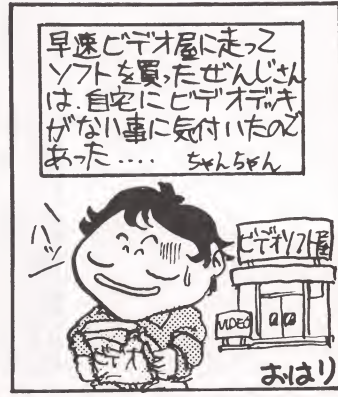 早速ビデオ屋に走って
ソフトを買ったぜんじさん
は、自宅にビデオデッキ
がない事に気付いたので
あった‥‥ ちゃんちゃん
ハッ
ビデオソフト屋
VIDEO
ビデオ
おはり